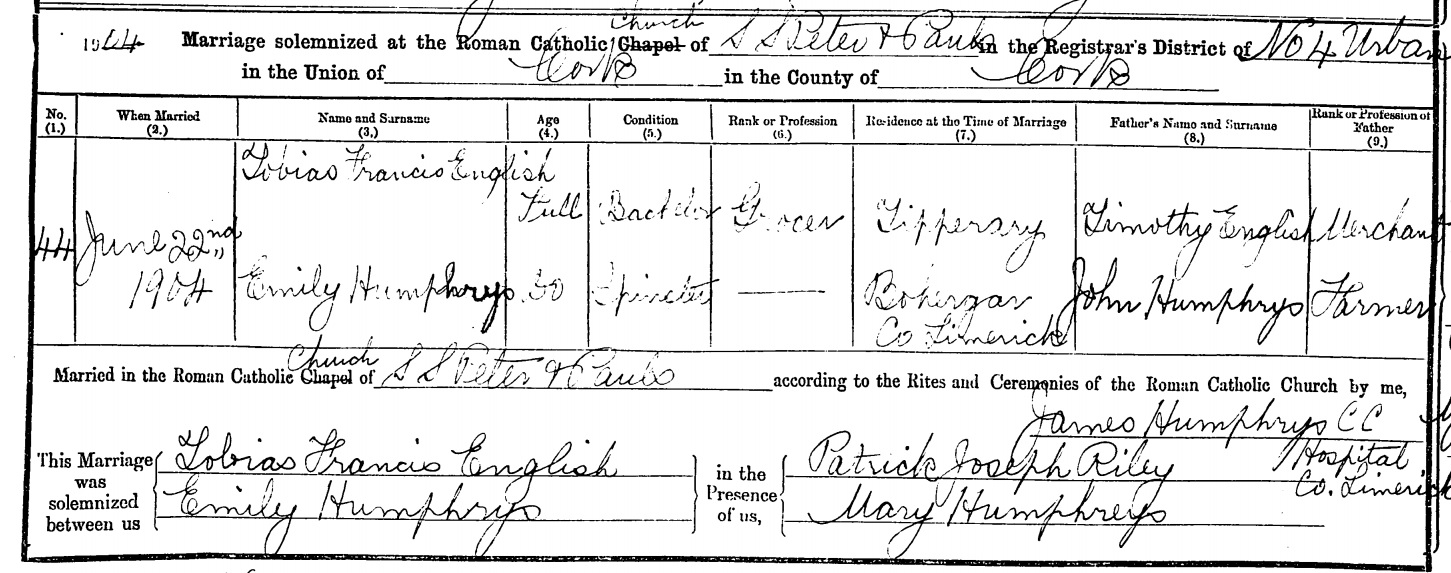 Church
1904 Marriage solemnized at the Roman Catholic Chapel of S S Peter & Pauls in the Registrar's District of No 4 Urban
in the Union of Cork in the County of Cork
No. (1.) When Married (2.) Name and Surname (3.) Age (4.) Condition (5.) Rank or Profession (6.) Residence at the Time of Marriage (7.) Father's Name and Surname (8.) Rank or Profession of Father (9.)
Tobias Francis English Full Bachelor Grocer Tipperary Timothy English Merchant
44 June 22nd 1904
Emily Humphrys Do Spinster — Bohergar John Humphrys Farmer
Co Limerick
Church
Married in the Roman Catholic Chapel of S S Peter & Pauls according to the Rites and Ceremonies of the Roman Catholic Church by me,
James Humphrys CC
Hospital
Co. Limerick
This Marriage was solemnized between us
Tobias Francis English
Emily Humphrys
in the Presence of us,
Patrick Joseph Riley
Mary Humphreys